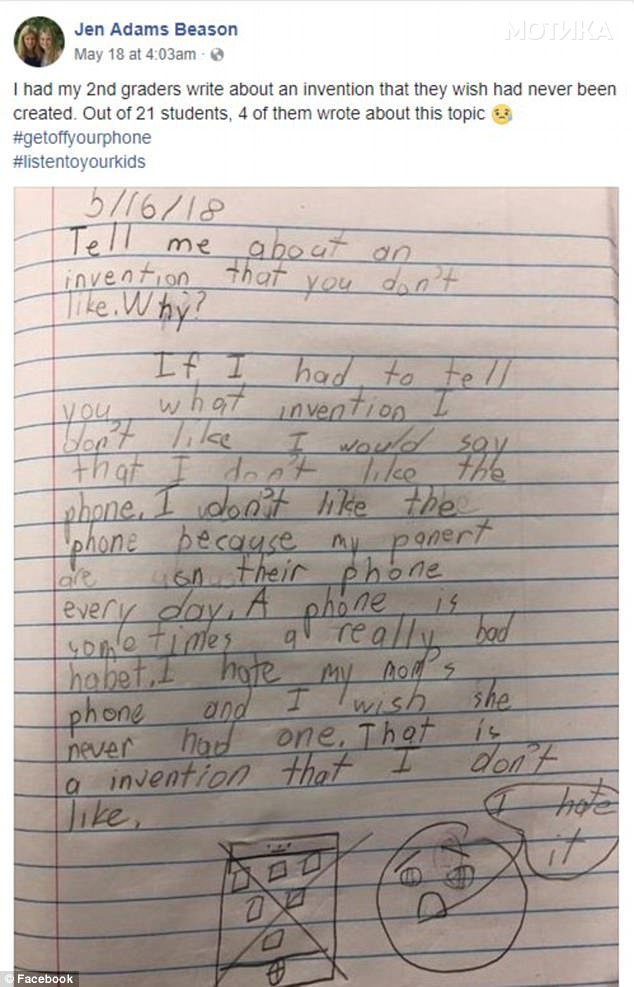 Jen Adams Beason
МОТИКА
May 18 at 4:03am ·
I had my 2nd graders write about an invention that they wish had never been
created. Out of 21 students, 4 of them wrote about this topic 😢
#getoffyourphone
#listentoyourkids
5/16/18
Tell me about an
invention that you don't
like. Why?
If I had to tell
you what invention I
don't like I would say
that I don't like the
phone. I don't like the
phone because my panert
are on their phone
every day. A phone is
sometimes a really bad
habet. I hate my mom's
phone and I wish she
never had one. That is
a invention that I don't
like.
I hate
it
© Facebook